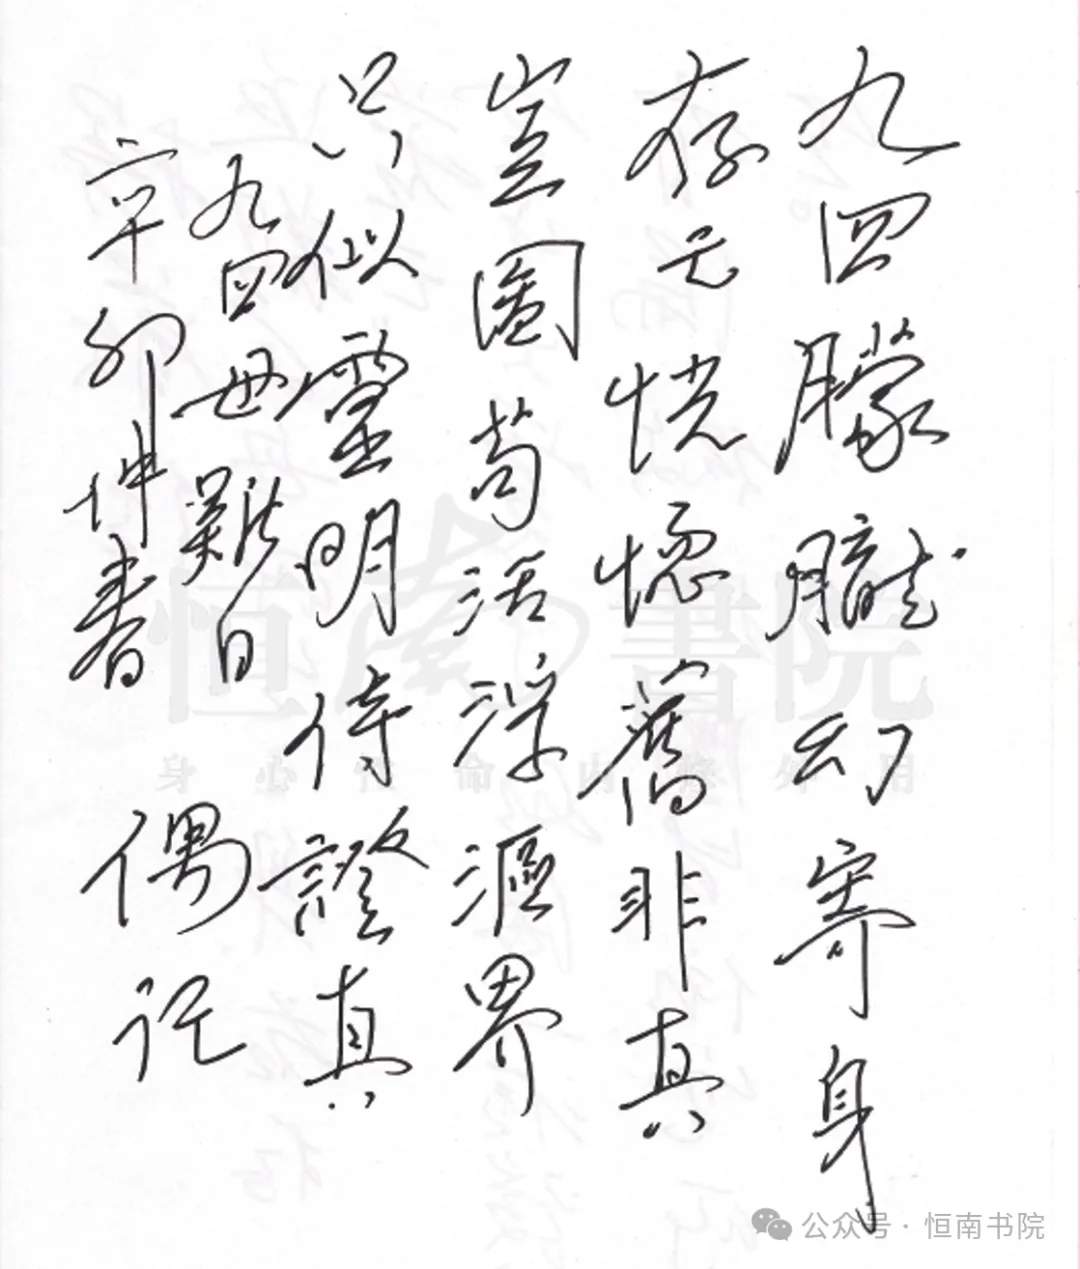 九四朦朧幻寄身
存亡恍惚舊非真
豈圖苟活浮漚界
只似靈明待證真
九四母難日
辛卯仲春
偶记
恒南書院
身心性命内修外用
公众号 · 恒南书院